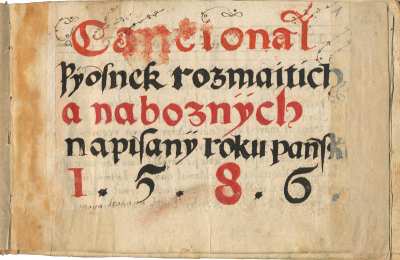 Cancional
Pyosnek rozmaitich
a naboznych
napisaný roku pańs
1. 5. 8. 6